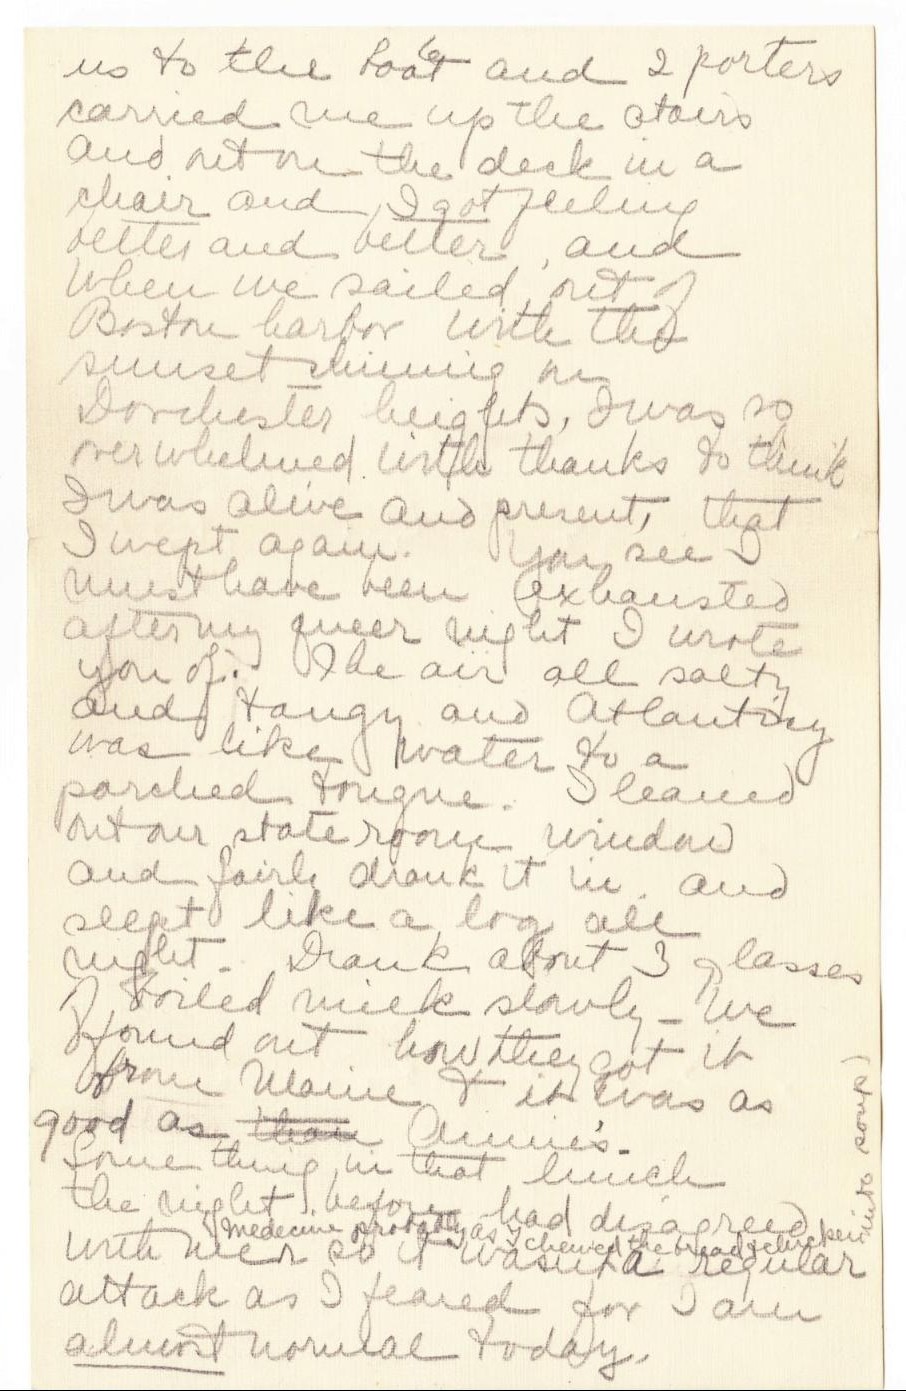 us to the boat and 2 porters
carried me up the stairs
and out on the deck in a
chair and I got feeling
better and better, and
when we sailed out of
Boston harbor with the
sunset shining on
Dorchester heights, I was so
overwhelmed with thanks to think
I was alive and present, that
I wept again. You see I
must have been exhausted
after my queer night I wrote
you of. The air all salty
and tangy and Atlanticy
was like water to a
parched tongue. I leaned
out our stateroom window
and fairly drank it in. and
slept like a log all
night. Drank about 3 glasses
of boiled milk slowly – We
found out how they got it
from Maine & it was as
good as than Annie's.
Something in that lunch
the night before had disagreed
(medecine probably as I chewed the bread & chicken into soup)
with me so it wasn't a regular
attack as I feared for I am
almost normal today.